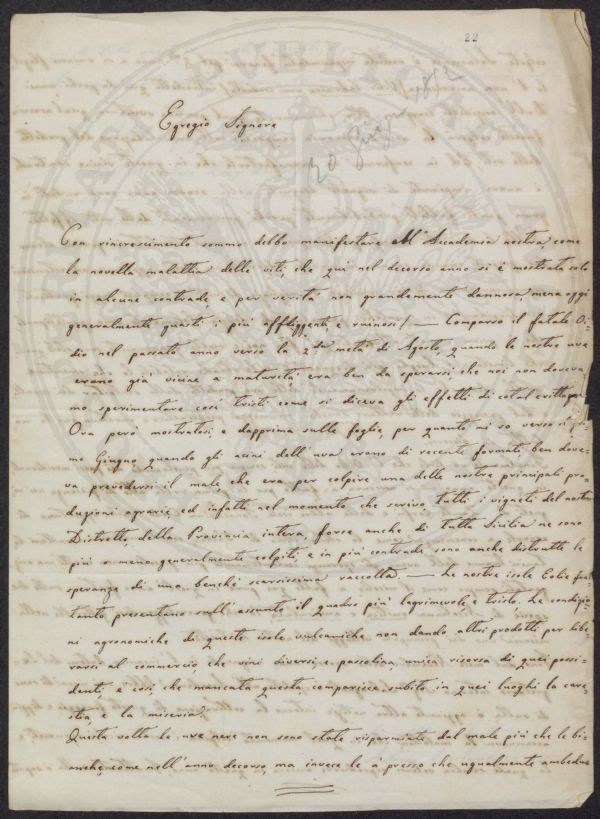 22
Egregio Signore
20 Giugno 1852
Con rincrescimento sommo debbo manifestare all'Accademia nostra come
la novella malattia delle viti, che quì nel decorso anno si è mostrata solo
in alcune contrade, e per verità non grandemente dannosa, mena oggi
generalmente guasti i più affliggenti e ruinosi! — Comparso il fatale Oi-
dio nel passato anno verso la 2da metà di Agosto, quando le nostre uve
erano già vicine a maturità era ben da sperarsi, che noi non doveva-
mo sperimentare così tristi come si diceva gli effetti di cotal crittogama
Ora però mostratosi e dapprima sulle foglie, per quanto mi so verso i
mo Giugno, quando gli acini dell'uva erano di recente formati ben dove-
va prevedersi il male, che era per colpire una delle nostre principali pro-
duzioni agrarie, ed infatti nel momento che scrivo tutti i vigneti del nostro
Distretto, della Provincia intera, forse anche di tutta Sicilia ne sono
più o meno generalmente colpiti, e in più contrade sono anche distrutte le
speranze di una benchè scarsissima raccolta. — Le nostre isole Eolie
tanto presentano sull'assunto il quadro più lagrimevole, e tristo. Le condizio-
ni agronomiche di queste isole vulcaniche non dando altri prodotti per libe-
rarsi al commercio, che vini diversi, e passolina, unica risorsa di quei possi-
denti, è così, che mancata questa, comparisce subito in quei luoghi la care-
stia, e la miseria.
Questa volta le uve nere non sono state risparmiate dal male più che le bi-
anche, come nell'anno decorso, ma invece le à presso che ugualmente ambedue